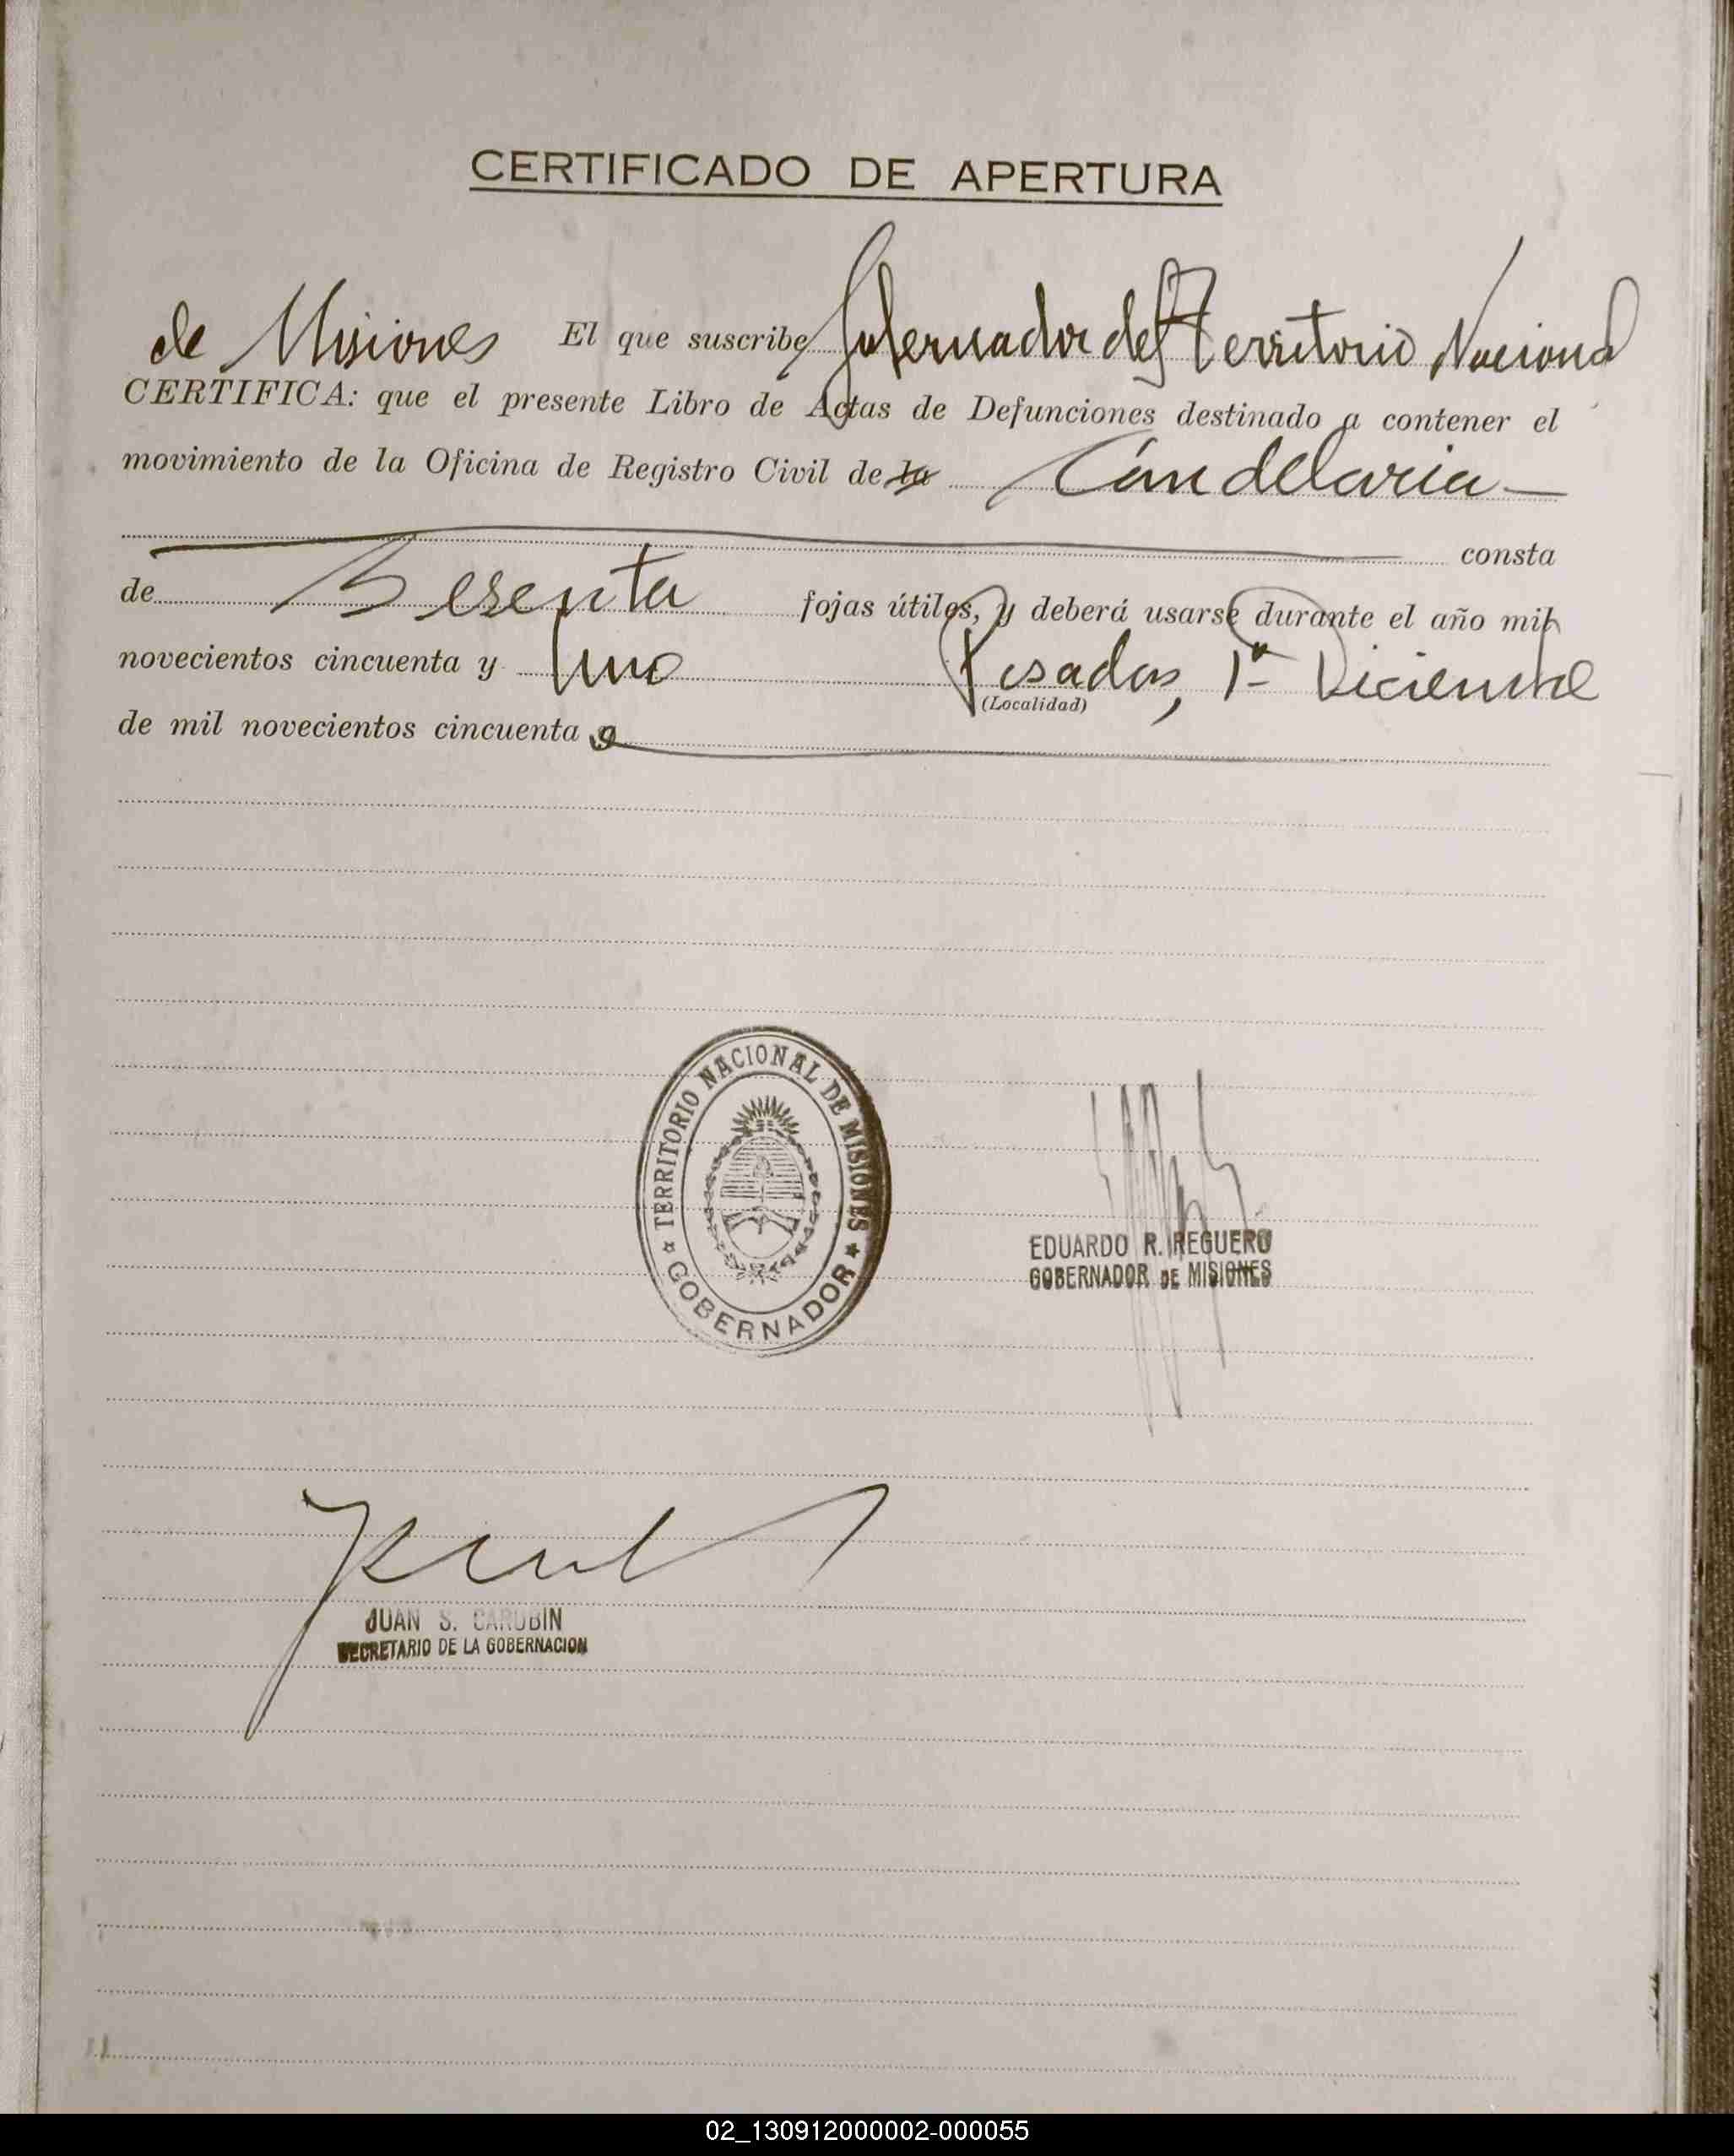 CERTIFICADO DE APERTURA
de Misiones El que suscribe Gobernador del Territorio Nacional
CERTIFICA: que el presente Libro de Actas de Defunciones destinado a contener el
movimiento de la Oficina de Registro Civil de la Candelaria
consta
de Sesenta fojas útiles, y deberá usarse durante el año mil
novecientos cincuenta y Uno Posadas, 1º Diciembre
(Localidad)
de mil novecientos cincuenta
TERRITORIO NACIONAL DE MISIONES
GOBERNADOR
EDUARDO R. REGUERO
GOBERNADOR DE MISIONES
JUAN S. CARUBIN
SECRETARIO DE LA GOBERNACION
02_130912000002-000055